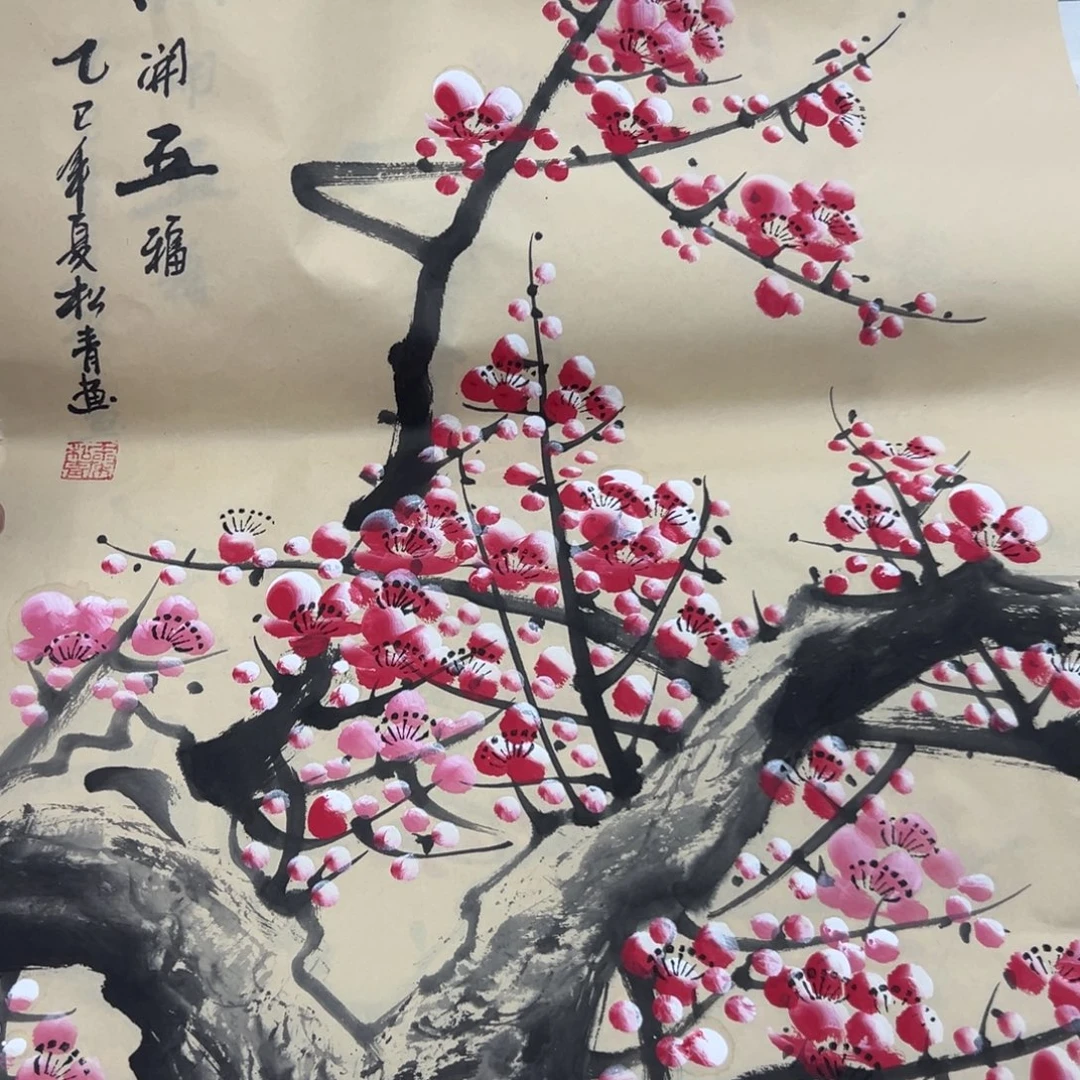 開五福
乙巳年夏松青畫